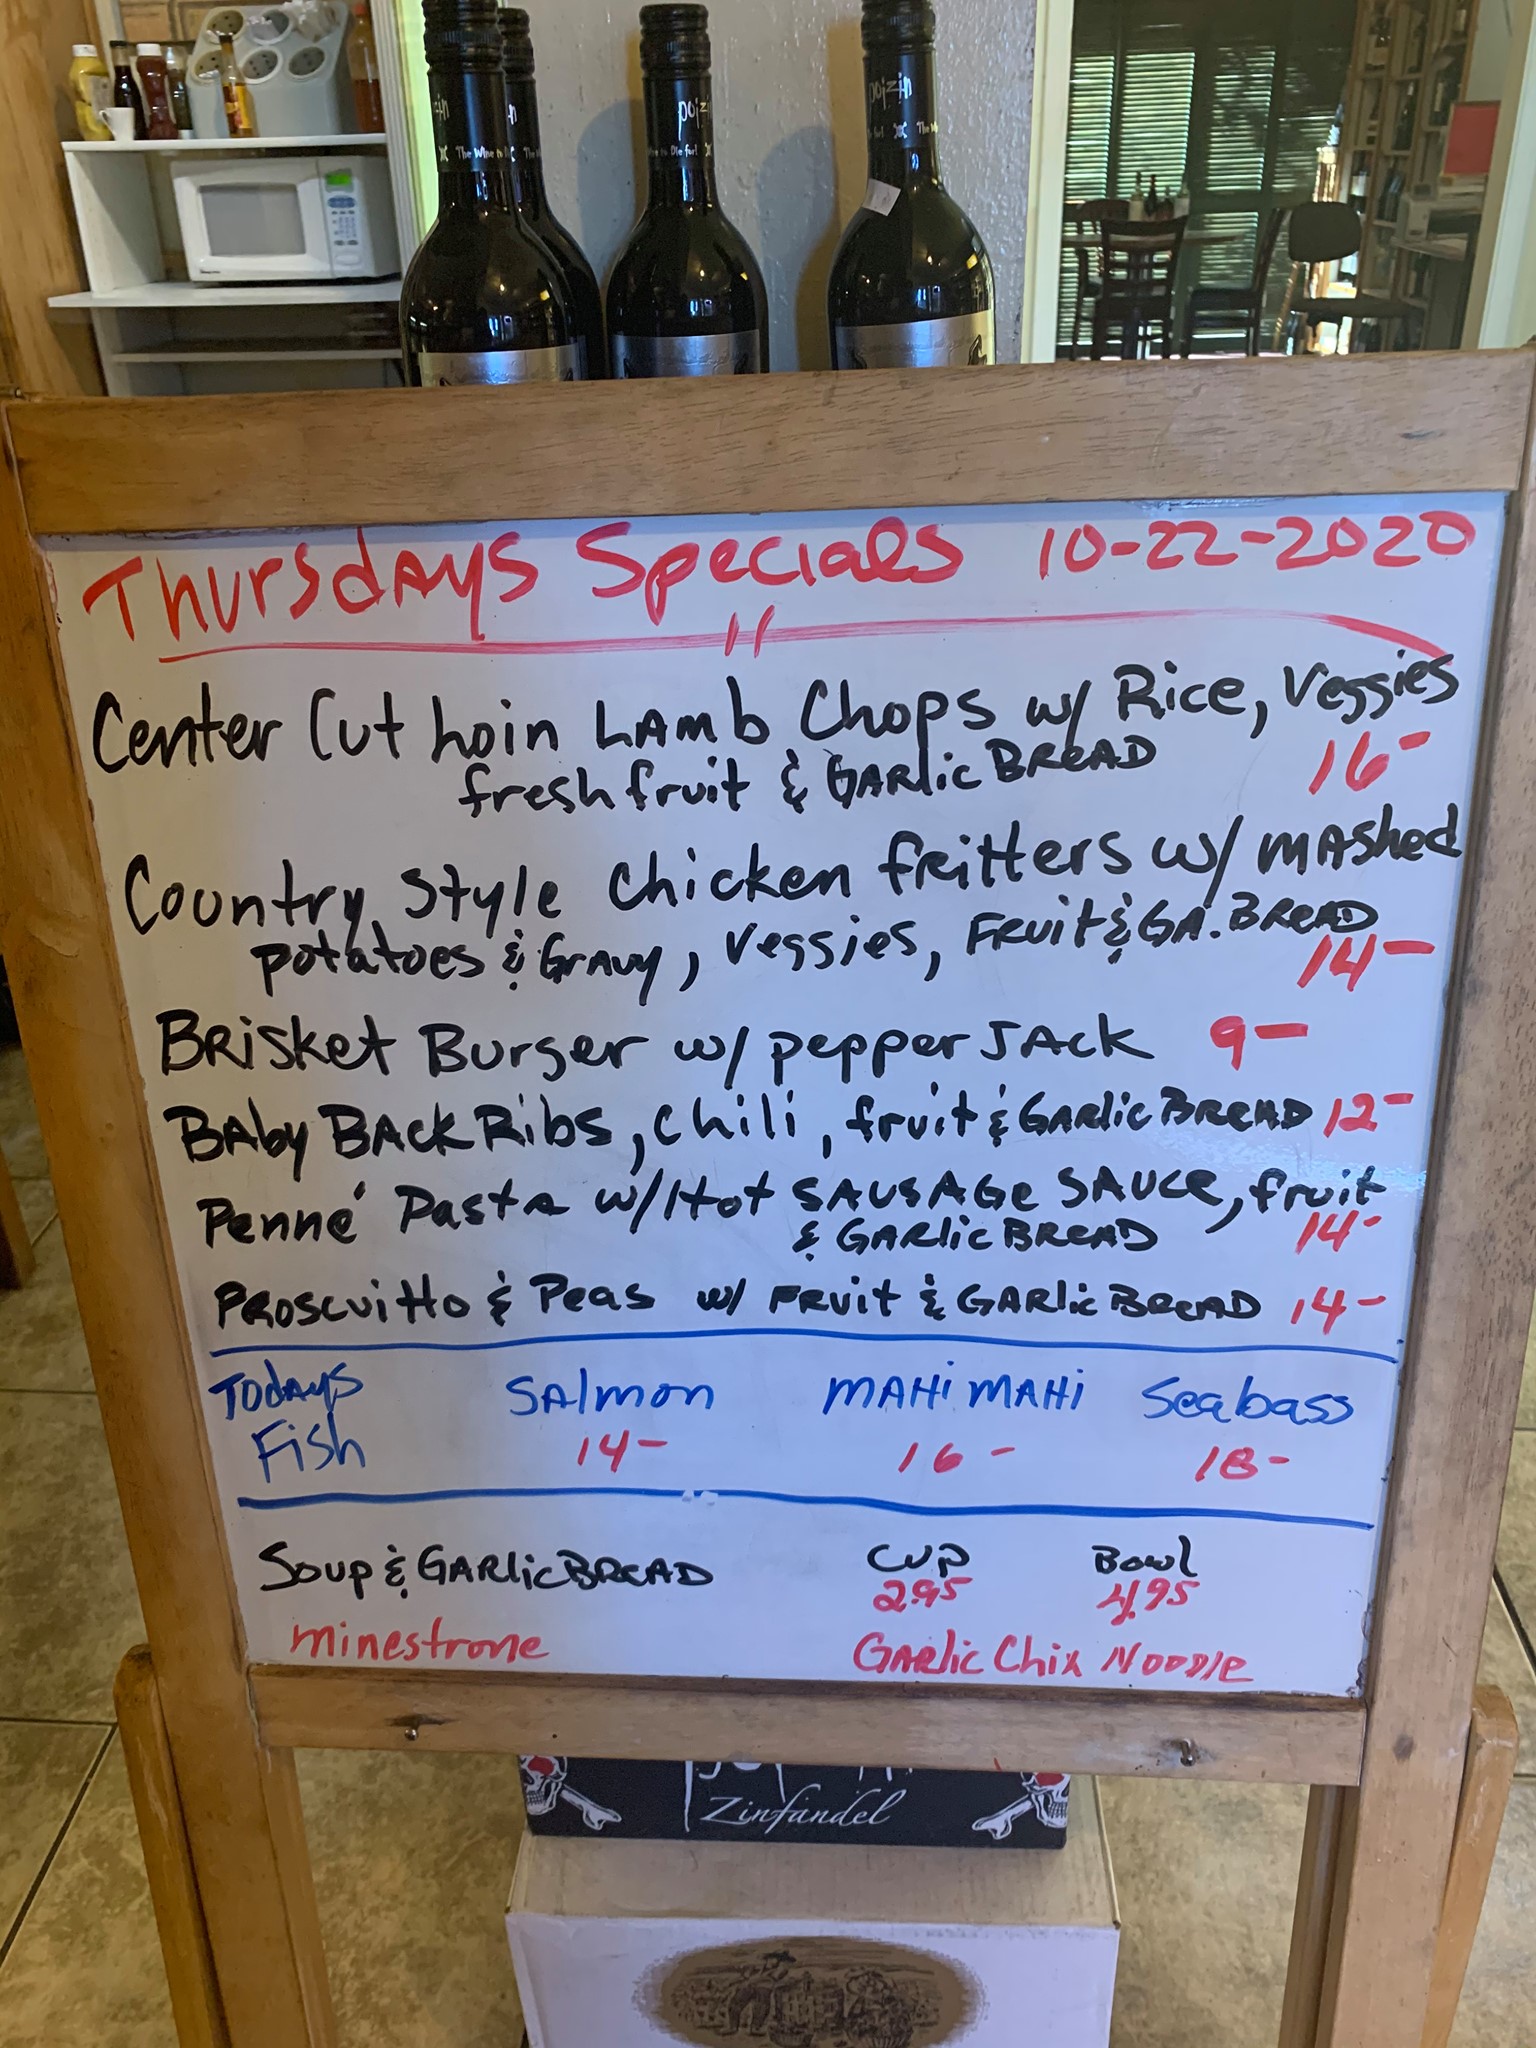 poizin
The Wine to
poizin
to Die for!
poizin
The
Thursdays Specials 10-22-2020
Center Cut Loin Lamb Chops w/ Rice, Veggies
fresh fruit & Garlic Bread 16-
Country Style Chicken fritters w/ mashed
potatoes & Gravy, Veggies, Fruit & Ga. Bread
14-
Brisket Burger w/ pepper Jack 9-
Baby Back Ribs, chili, fruit & Garlic Bread 12-
Penné Pasta w/ Hot Sausage Sauce, fruit
& Garlic Bread 14-
Proscuitto & Peas w/ Fruit & Garlic Bread 14-
Todays Salmon Mahi Mahi Seabass
Fish 14- 16- 18-
Soup & Garlic Bread Cup Bowl
2.95 4.95
Minestrone Garlic Chix Noodle
Zinfandel